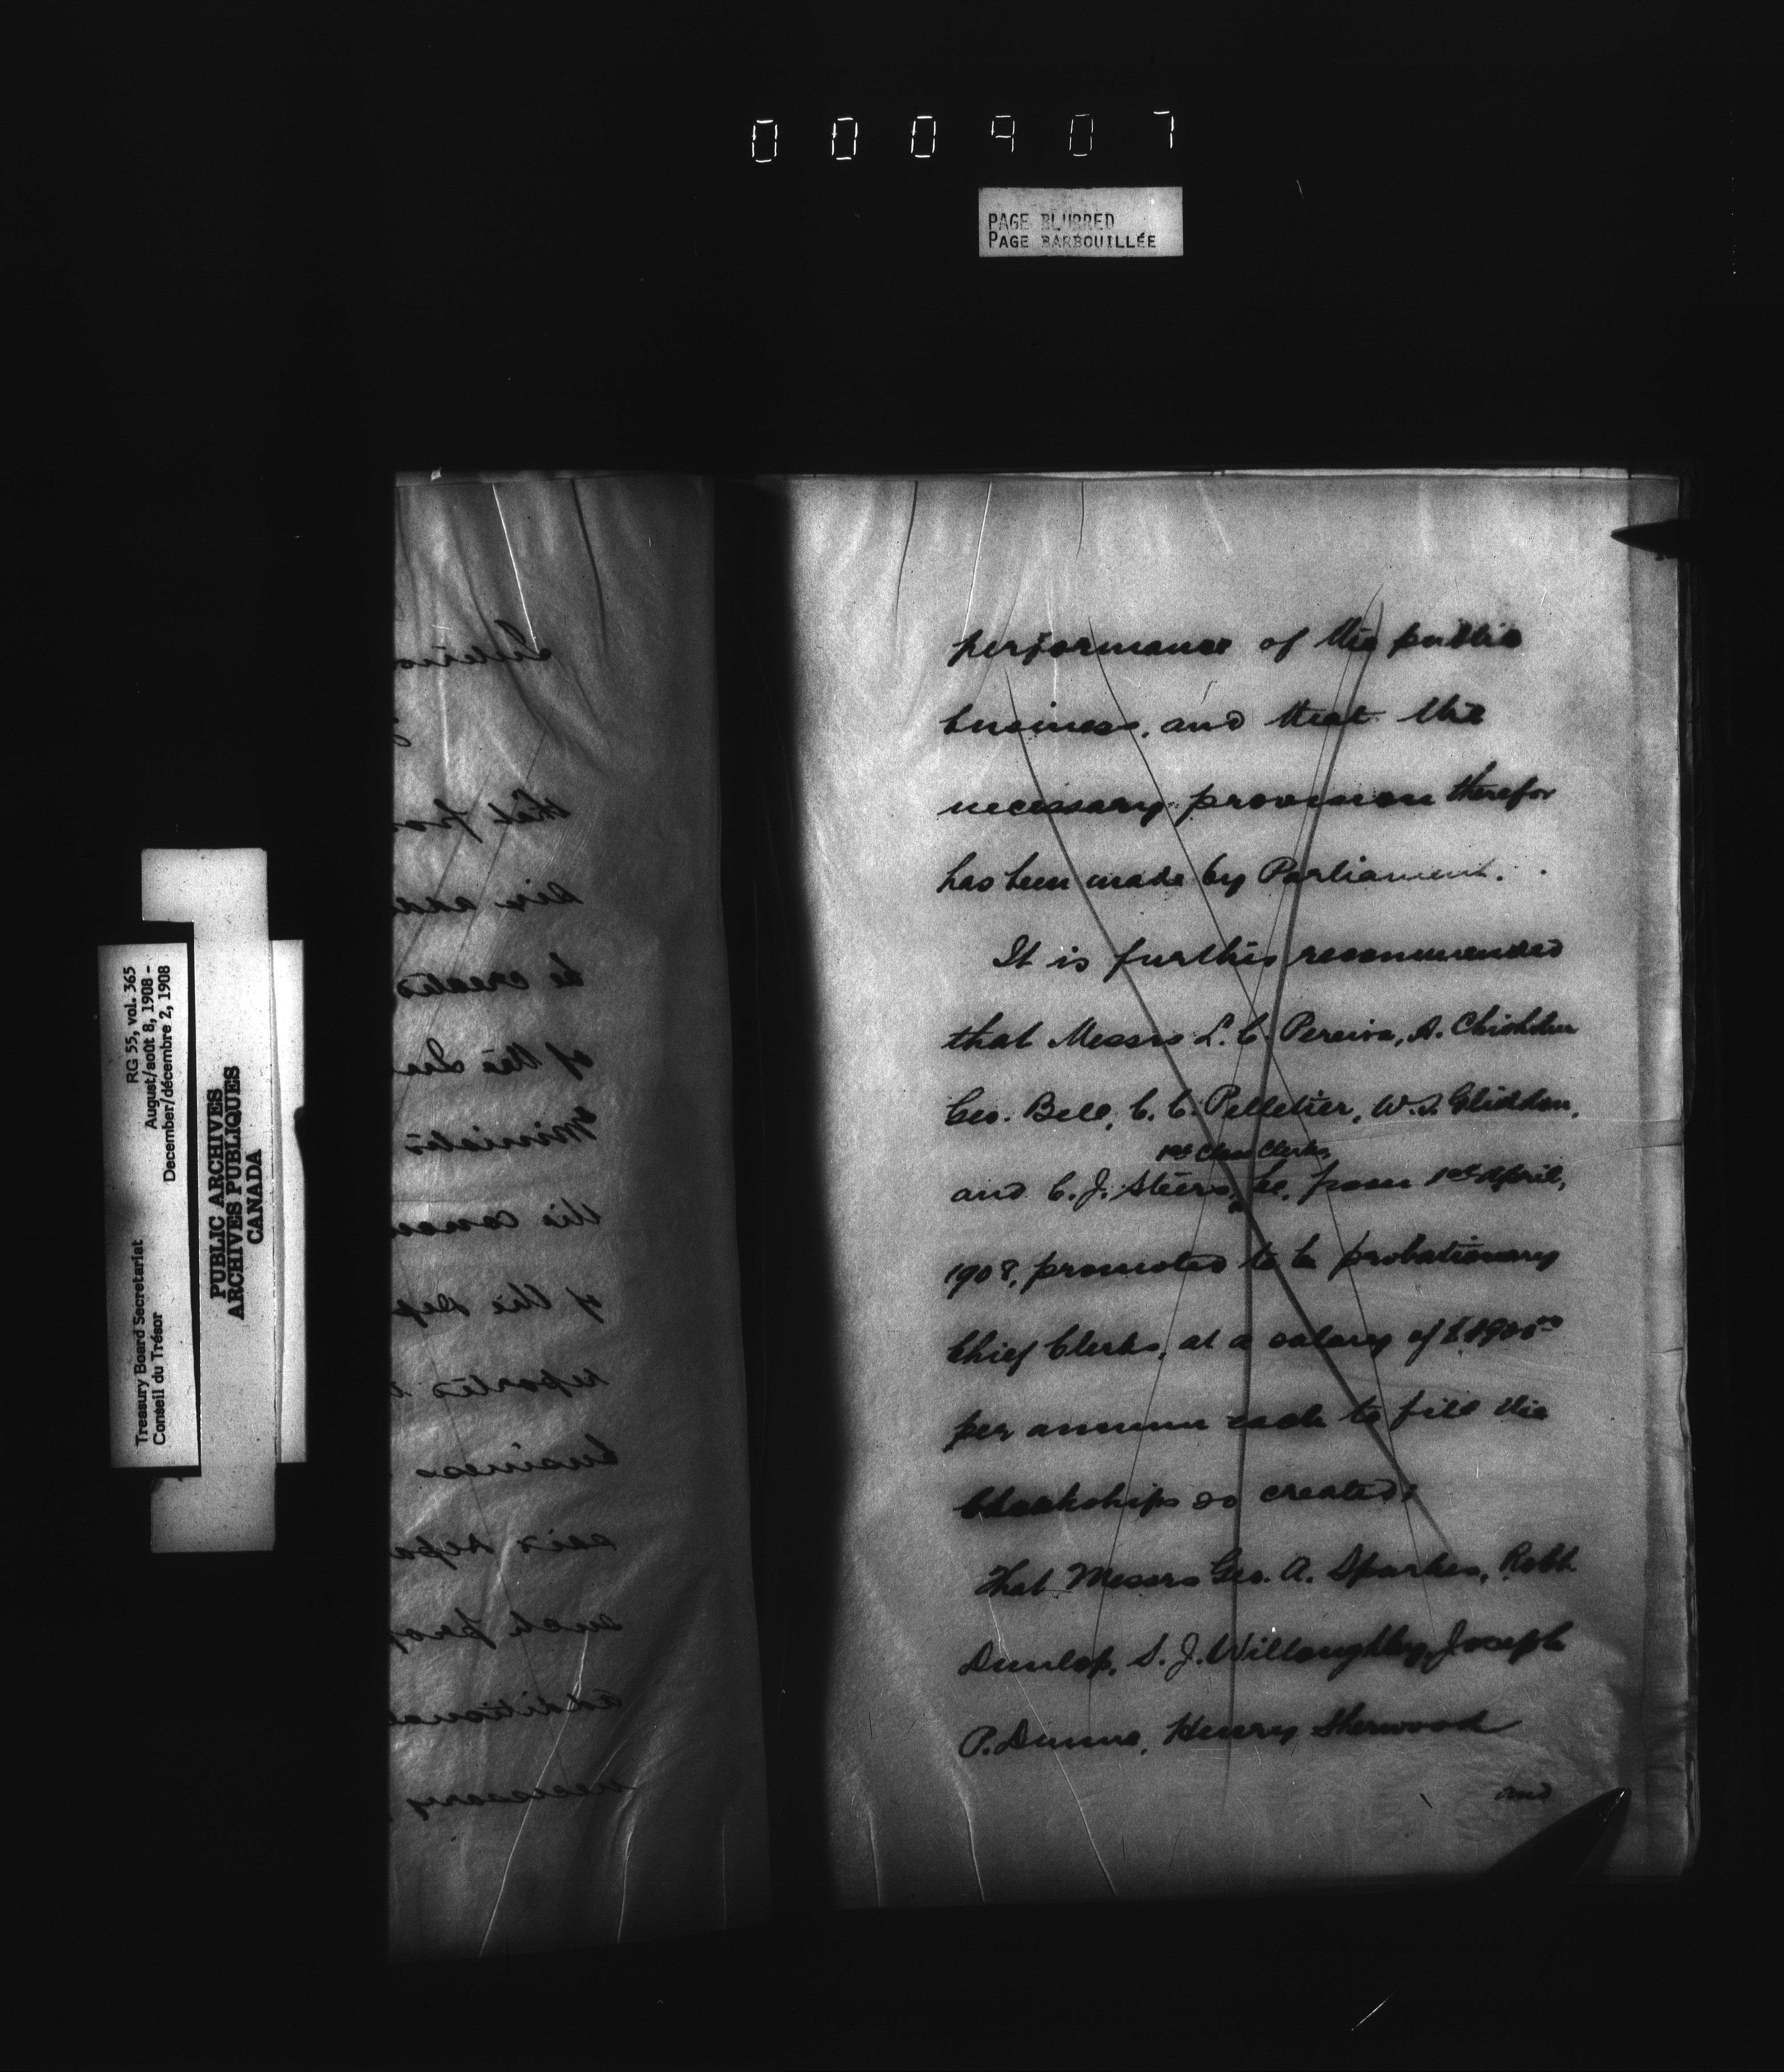 000907
PAGE BLURRED
PAGE BARBOUILLÉE
RG 55, vol. 365
August/août 8, 1908 -
December/décembre 2, 1908
Treasury Board Secretariat
Conseil du Trésor
PUBLIC ARCHIVES
ARCHIVES PUBLIQUES
CANADA
performance of the public
business, and that the
necessary provision therefor
has been made by Parliament.
It is further recommended
that Messrs L. C. Pereira, A. Chisholm
Geo. Bell, C. C. Pelletier, W. S. Gliddon,
1st Class Clerks,
and C. J. Steers, be, from 1st April,
1908, promoted to be probationary
Chief Clerks, at a salary of $1900.00
per annum each to fill the
Clerkships so created;
That Messrs Geo. A. Sparkes, Robt.
Dunlop, S. J. Willoughby, Joseph
P. Dunne, Henry Sherwood
and
that
be created
of the
Minister
the
of the Dep
reported
business
such prop
additional
necessary